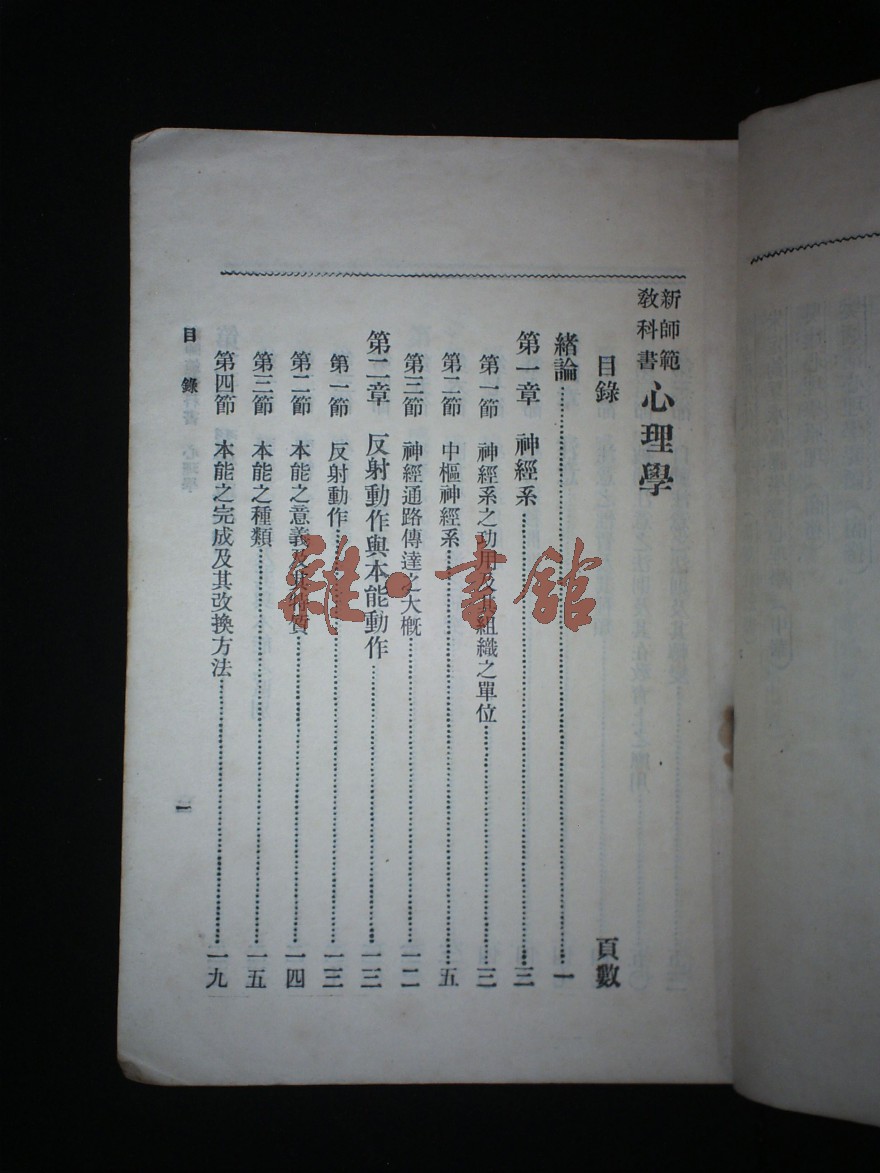 新師範教科書 心理學
目錄 頁數
緒論……一
第一章 神經系……三
第一節 神經系之功用及其組織之單位……三
第二節 中樞神經系……五
第三節 神經通路傳達之大概……一二
第二章 反射動作與本能動作……一三
第一節 反射動作……一三
第二節 本能之意義及其特質……一四
第三節 本能之種類……一五
第四節 本能之完成及其改換方法……一九
目錄 一
雜·書館